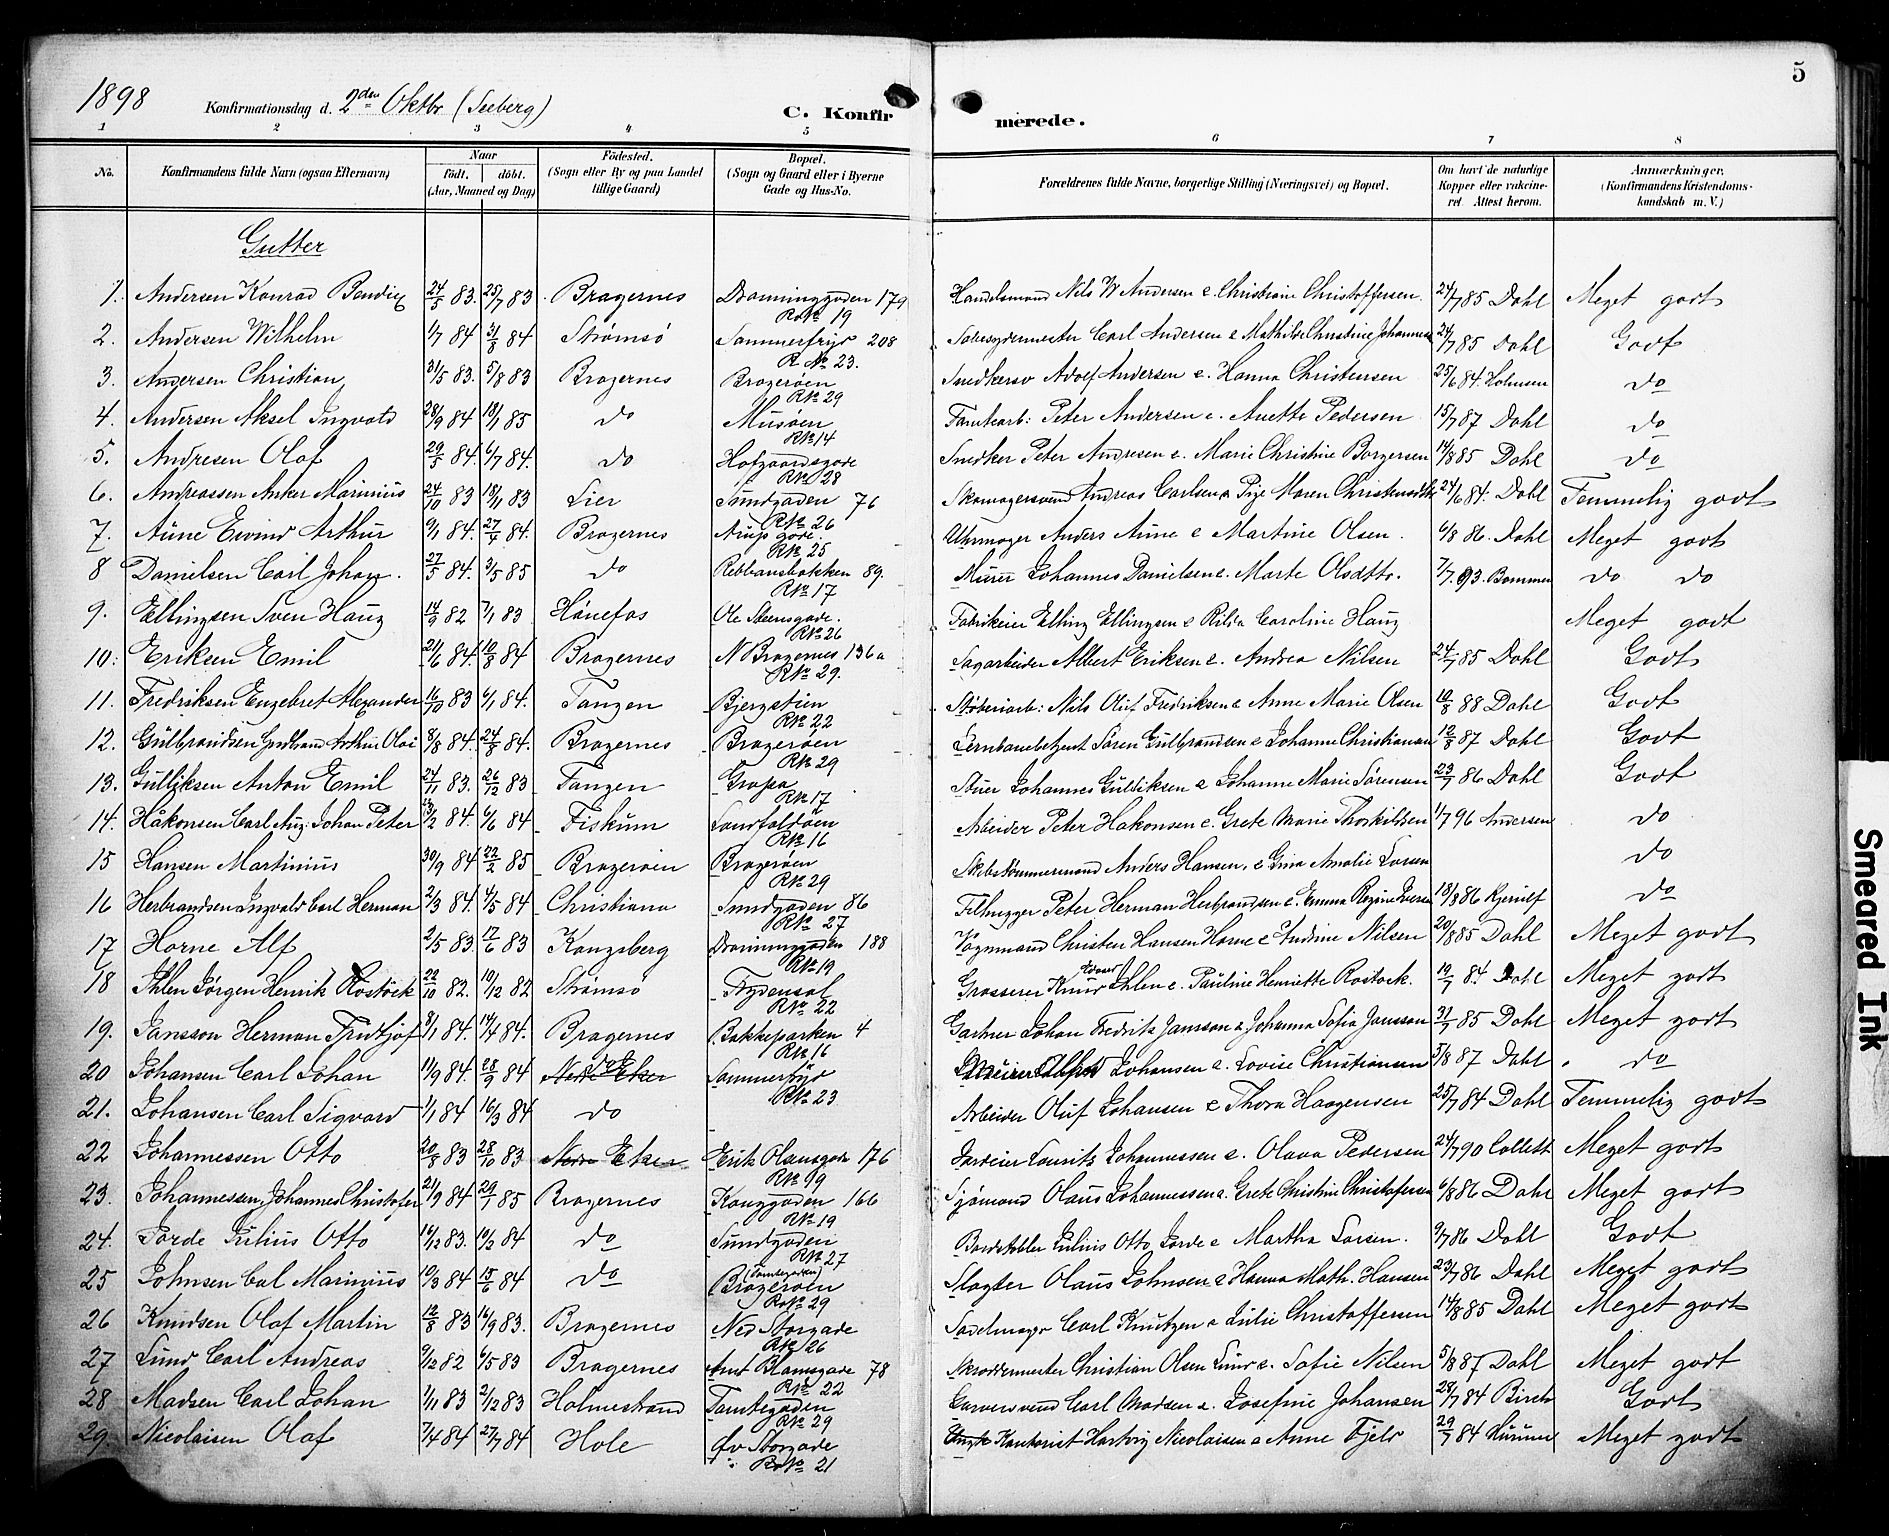 5
1898 Konfirmationsdag d. 2den Oktbr (Seeberg) C. Konfirmerede.
1 2 3 4 5 6 7 8
No. Konfirmandens fulde Navn (ogsaa Efternavn) Naar født. døbt. (Aar, Maaned og Dag) Fødested. (Sogn eller By og paa Landet tillige Gaard) Bopæl. (Sogn og Gaard eller i Byerne Gade og Hus-No. Forældrenes fulde Navne, borgerlige Stilling (Næringsvei) og Bopæl. Om havt de naturlige Kopper eller vakcineret. Attest herom. Anmærkninger. (Konfirmandens Kristendomskundskab m. V.)
Gutter
1. Andersen Konrad Bendix 24/5 83. 25/7 83 Bragernes Dronninggaden 179 Handelsmand Nils W Andersen & Christiane Christoffersen. 24/7 85 Dahl Meget godt
R.No 19
2. Andersen Wilhelm 1/7 84 31/8 84 Strømsø Sommerfryd 208 Carl Andersen & Mathilde Christine Johannesen 24/7 85 Dahl Godt
R No 23.
3. Andersen Christian 31/5 83. 5/8 83 Bragernes Bragerøen Snedkersv Adolf Andersen & Hanna Christensen 25/6 84. Holmsen do
RNo 29
4. Andersen Aksel Ingvald 28/9 84 18/1 85 do Musøen Tomtearb: Peter Andersen & Anette Pedersen 15/7 87 Dahl do
RNo 14
5. Andresen Olaf 29/5 84. 6/7 84. do Hofgaardsgade Snedker Peter Andresen & Marie Christine Borgersen 14/8 85 Dahl do
RNo 28
6. Andreassen Anker Marinius 24/10 83 18/11 83 Lier Sundgaden 76 Skomagersvend Andreas Carlsen & Pige Maren Christensdtr 24/6 84. Dahl Temmelig godt
RNo 26
7. Aune Eivind Arthur 9/1 84. 27/4 84. Bragernes Arups gade. Uhrmager Anders Aune & Martine Olsen. 6/8 86. Dahl Meget godt
RNo 25
8 Danielsen Carl Johan. 27/5 84. 3/5 85 do Rebbansbakken 89. Murer Johannes Danielsen & Marte Olsdttr. 7/7 93. Bommen do do
RNo 17
9. Ellingsen Sven Haug 14/9 82 7/1 83 Hønefos Ole Steensgade. Fabrikeier Elling Ellingsen & Caroline Haug Meget godt
RNo 26
10. Eriksen Emil 21/6 84. 10/8 84 Bragernes N Bragernes 136a Sagarbeider Albert Eriksen & Andrea Nilsen 24/7 85 Dahl Godt
RNo 29.
11. Fredriksen Engebret Alexander 16/10 83 6/1 84. Tangen Bjergstien Støberiarb: Nils Oluf Fredriksen & Anne Marie Olsen 10/8 88 Dahl Godt
RNo 22
12. Gulbrandsen Arthur Olai 8/8 84. 24/8 84. Bragernes Bragerøen Jernbanebetjent Søren Gulbrandsen & Johanne Christiansen 12/8 87 Dahl Godt
RNo 29
13. Gulliksen Anton Emil 24/11 83. 26/12 83 Tangen Stuer Johannes Gulliksen & Johanne Marie Sørensen 23/7 86 Dahl Godt
RNo 17
14. Håkonsen Carl Aug. Johan Peter 13/2 84. 6/6 84 Fiskum Landfaldøen Arbeider Peter Hakonsen & Grete Marie Thorkildsen 1/7 96 Andersen do
RNo 16
15 Hansen Martinius 30/9 84 22/2 85 Bragerøen Bragerøen Skibstømmermand Anders Hansen & Gina Amalie Larsen do
RNo 29
16 Herbrandsen Ingvald Carl Herman 2/3 84. 4/5 84 Christiana Sundgaden 86 Filhugger Peter Herman Herbrandsen & Emma Regine Iversen 18/8 86 Kjerulf do
RNo 27
17 Horne Alf 2/5 83. 17/6 83 Kongsberg Dronninggaden 188 Vognmand Christen Hansen Horne & Andrine Nilsen 20/8 85 Dahl Meget godt
RNo 19
18 Ihlen Jørgen Henrik Rostock 22/10 82. 10/12 82 Strømsø Frydensal Grosserer Knud Edvard Ihlen & Pauline Henriette Rostock. 19/7 84. Dahl Meget godt
RNo 22
19. Jansson Herman Fridtjof 8/1 84. 14/4 84. Bragernes Bakkeparken 4 Gartner Johan Fredrik Jansson & Johanna Sofia Jansson 31/7 85 Dahl Meget godt
RNo 16
20 Johansen Carl Johan 11/9 84. 28/9 84 Nedre Eker do Sommerfryd Johansen & Lovise Christiansen 5/8 87 Dahl " do
RNo 23
21. Johansen Carl Sigvard 1/1 84 16/3 84 do Arbeider Oluf Johansen & Thora Haagensen 25/7 84 Dahl Temmelig godt
22 Johannessen Otto 20/8 83 28/10 83 Nedre Eker Erik Olausgade 176 Lauritz Johannessen & Olava Pedersen 24/7 90 Collett Meget godt
RNo 19
23. Johannessen, Johannes Christofer 21/9 84 29/1 85 Bragernes Konggaden 166 Sjømand Olaus Johannessen & Grete Christine Christofersen 6/8 86 Dahl Meget godt
RNo 19
24. Jorde Julius Otto 16/12 83. 10/2 84 do Sundgaden Julius Otto Jorde & Martha Larsen. 9/7 86 Dahl Godt
RNo 27
25 Johnsen Carl Marinius 10/3 84 15/6 84 do Bragerøen Slagter Olaus Johnsen & Hanna Math. Hansen 23/7 86 Dahl Meget godt
RNo 29
26 Knudsen Olaf Martin 12/8 83 16/9 83. Bragernes Ned Storgade Sadelmager Carl Knutzen & Julie Christoffersen 14/8 85 Dahl Meget godt
RNo 26
27 Lund Carl Andreas 9/12 82 6/5 83 Bragernes Amt Blomsgade 78 Skræddermester Christian Olsen Lund & Sofie Nilsen 5/8 87 Dahl Meget godt
RNo 22
28 Madsen Carl Johan 1/11 83 2/12 83 Holmestrand Tomtegaden Garversvend Carl Madsen & Josefine Johansen 28/7 84 Birch Godt
RNo 29
29. Nicolaisen Olaf 7/4 84 27/7 84 Hole Øv Storgade Kontorist Hartvig Nicolaisen & Anne Fjeld 29/7 84 Meget godt
RNo 21
Smeared Ink